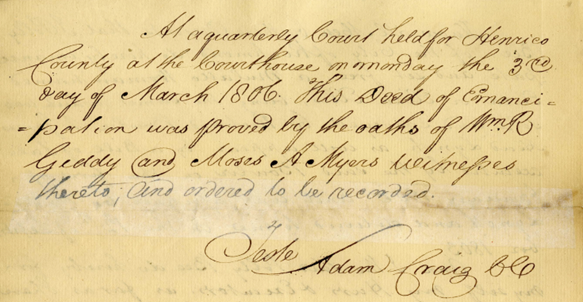 At a quarterly Court held for Henrico
County at the Courthouse on monday the 3rd
day of March 1806. This Deed of Emanci=
=pation was proved by the oaths of Wm R
Geddy and Moses A Myers Witnesses
thereto, and ordered to be recorded.
Teste Adam Craig CC